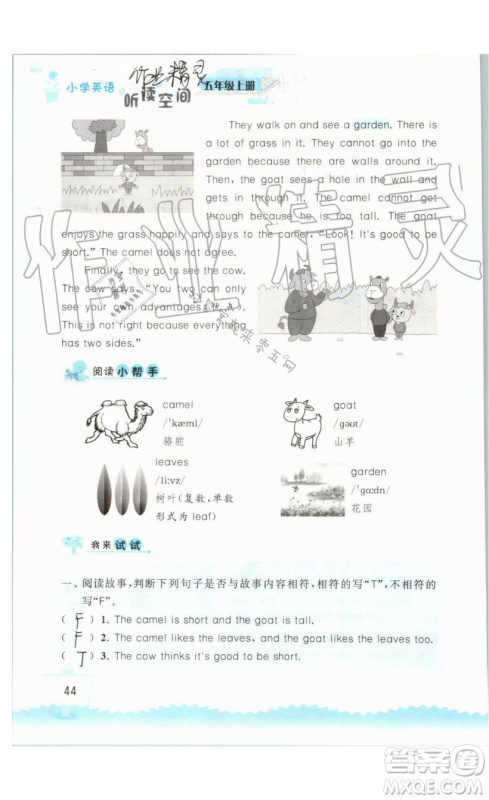 小学英语
作业精灵
五年级上册
听读空间
They walk on and see a garden. There is
a lot of grass in it. They cannot go into the
garden because there are walls around it.
Then, the goat sees a hole in the wall and
gets through it. The camel cannot get
through because he is too tall. The goat
enjoys the grass happily and says to the camel, “Look! It's good to be
short.” The camel does not agree.
Finally, they go to see the cow.
The cow says, “You two can only
see your own advantages(优点).
This is not right because everything
has two sides.”
作业精灵
阅读小帮手
camel
/ˈkæml/
骆驼
goat
/ɡəʊt/
山羊
leaves
/liːvz/
树叶(复数,单数
形式为 leaf)
garden
/ˈɡɑːdn/
花园
我来试试
一、阅读故事,判断下列句子是否与故事内容相符,相符的写“T”,不相符的
写“F”。
( F ) 1. The camel is short and the goat is tall.
( F ) 2. The camel likes the leaves, and the goat likes the leaves too.
( T ) 3. The cow thinks it's good to be short.
44
答案圈
MXQE.COM